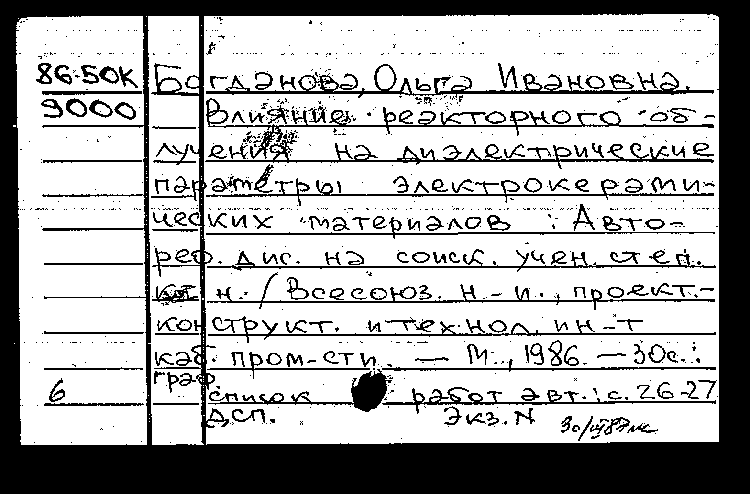 86-50К Богданова, Ольга Ивановна.
9000 Влияние реакторного об-
лучения на диэлектрические
параметры электрокерами-
ческих материалов : Авто-
реф. дис. на соиск. учен. степ.
к.т.н. / Всесоюз. н.-и., проект.-
конструкт. и технол. ин-т
каб. пром-сти. — М., 1986. — 30с. :
граф.
6 список работ авт.: с. 26-27
ДСП. Экз. N